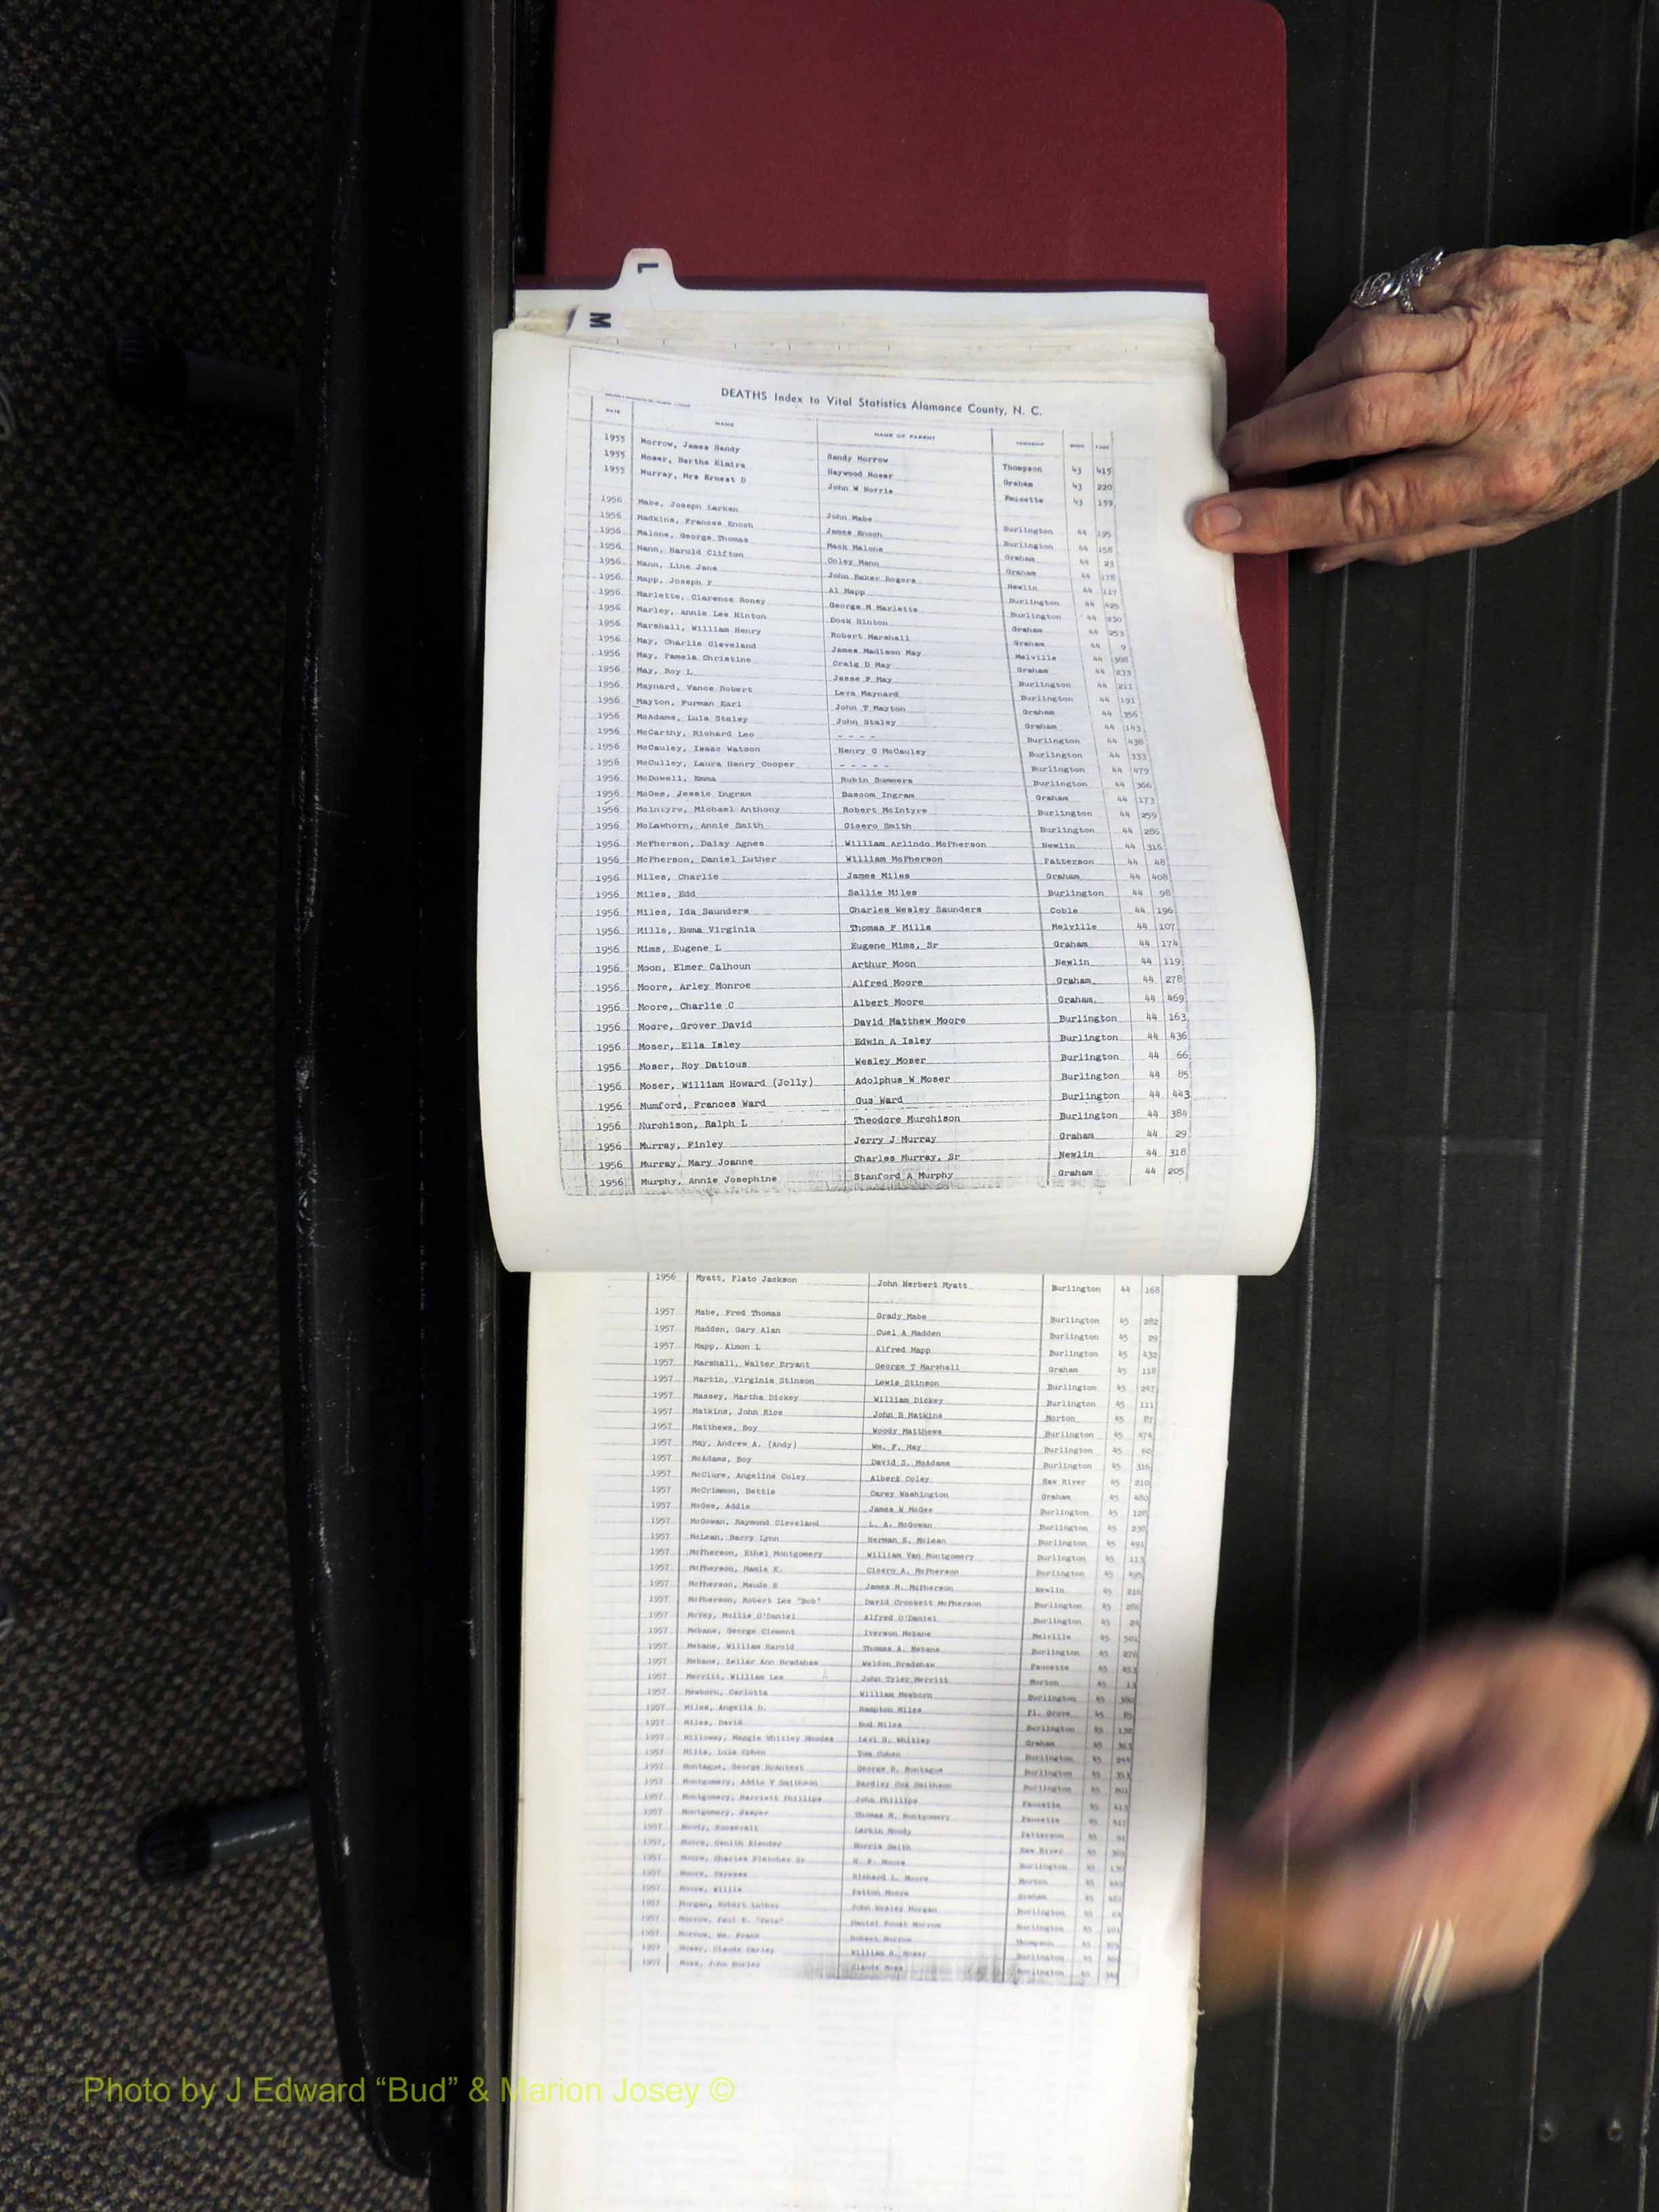 L
M
DEATHS Index to Vital Statistics Alamance County, N. C.
DATE NAME NAME OF PARENT TOWNSHIP BOOK PAGE
1955 Morrow, James Sandy Sandy Morrow Thompson 43 415
1955 Moser, Bertha Elmira Haywood Moser Graham 43 220
1955 Murray, Mrs Ernest D John W Norris Faucette 43 159
1956 Mabe, Joseph Larken John Mabe Burlington 44 195
1956 Madkins, Frances Enoch James Enoch Burlington 44 158
1956 Malone, George Thomas Mack Malone Graham 44 23
1956 Mann, Harold Clifton Coley Mann Graham 44 178
1956 Mann, Line Jane John Baker Rogers Newlin 44 117
1956 Mapp, Joseph F Al Mapp Burlington 44 495
1956 Marlette, Clarence Roney George M Marlette Burlington 44 230
1956 Marley, Annie Lee Hinton Dock Hinton Graham 44 253
1956 Marshall, William Henry Robert Marshall Graham 44 9
1956 May, Charlie Cleveland James Madison May Melville 44 388
1956 May, Pamela Christine Craig D May Graham 44 233
1956 May, Roy L Jesse F May Burlington 44 211
1956 Maynard, Vance Robert Leva Maynard Burlington 44 191
1956 Mayton, Furman Earl John T Mayton Graham 44 356
1956 McAdams, Lula Staley John Staley Graham 44 143
1956 McCarthy, Richard Leo - - - - Burlington 44 438
1956 McCauley, Isaac Watson Henry C McCauley Burlington 44 333
1956 McCulley, Laura Henry Cooper - - - - - Burlington 44 479
1956 McDowell, Emma Rubin Summers Burlington 44 366
1956 McGee, Jessie Ingram Bascom Ingram Graham 44 173
1956 McIntyre, Michael Anthony Robert McIntyre Burlington 44 259
1956 McLawhorn, Annie Smith Cicero Smith Burlington 44 286
1956 McPherson, Daisy Agnes William Arlindo McPherson Newlin 44 316
1956 McPherson, Daniel Luther William McPherson Patterson 44 48
1956 Miles, Charlie James Miles Graham 44 408
1956 Miles, Edd Sallie Miles Burlington 44 98
1956 Miles, Ida Saunders Charles Wesley Saunders Coble 44 196
1956 Mills, Emma Virginia Thomas F Mills Melville 44 107
1956 Mims, Eugene L Eugene Mims, Sr Graham 44 174
1956 Moon, Elmer Calhoun Arthur Moon Newlin 44 119
1956 Moore, Arley Monroe Alfred Moore Graham 44 278
1956 Moore, Charlie C Albert Moore Graham 44 469
1956 Moore, Grover David David Matthew Moore Burlington 44 163
1956 Moser, Ella Isley Edwin A Isley Burlington 44 436
1956 Moser, Roy Datious Wesley Moser Burlington 44 66
1956 Moser, William Howard (Jolly) Adolphus W Moser Burlington 44 85
1956 Mumford, Frances Ward Gus Ward Burlington 44 443
1956 Murchison, Ralph L Theodore Murchison Burlington 44 384
1956 Murray, Finley Jerry J Murray Graham 44 29
1956 Murray, Mary Joanne Charles Murray, Sr Newlin 44 318
1956 Murphy, Annie Josephine Stanford A Murphy Graham 44 205
1956 Myatt, Plato Jackson John Herbert Myatt Burlington 44 168
1957 Mabe, Fred Thomas Grady Mabe Burlington 45 282
1957 Madden, Gary Alan Cuel A Madden Burlington 45 29
1957 Mapp, Almon L Alfred Mapp Burlington 45 432
1957 Marshall, Walter Bryant George T Marshall Graham 45 118
1957 Martin, Virginia Stinson Lewis Stinson Burlington 45 247
1957 Massey, Martha Dickey William Dickey Burlington 45 111
1957 Matkins, John Rice John B Matkins Morton 45 87
1957 Matthews, Boy Woody Matthews Burlington 45 474
1957 May, Andrew A. (Andy) Wm. F. May Burlington 45 60
1957 McAdams, Boy David S. McAdams Burlington 45 316
1957 McClure, Angeline Coley Albert Coley Haw River 45 210
1957 McCrimmon, Bettie Carey Washington Graham 45 480
1957 McGee, Addie James W McGee Burlington 45 128
1957 McGowan, Raymond Cleveland L. A. McGowan Burlington 45 238
1957 McLean, Barry Lynn Herman E. McLean Burlington 45 491
1957 McPherson, Ethel Montgomery William Van Montgomery Burlington 45 113
1957 McPherson, Mamie E. Cicero A. McPherson Burlington 45 495
1957 McPherson, Maude E James M. McPherson Newlin 45 216
1957 McPherson, Robert Lee "Bob" David Crockett McPherson Burlington 45 286
1957 McVey, Mollie O'Daniel Alfred O'Daniel Burlington 45 24
1957 Mebane, George Clement Iverson Mebane Melville 45 501
1957 Mebane, William Harold Thomas A. Mebane Burlington 45 276
1957 Mebane, Zeller Ann Bradshaw Weldon Bradshaw Faucette 45 453
1957 Merritt, William Lee John Tyler Merritt Morton 45 13
1957 Mewborn, Carlotta William Mewborn Burlington 45 380
1957 Miles, Angelia D. Hampton Miles Pl. Grove 45 85
1957 Miles, David Bud Miles Burlington 45 138
1957 Milloway, Maggie Whitley Rhodes Levi H. Whitley Graham 45 363
1957 Mills, Lula Cohen Tom Cohen Burlington 45 244
1957 Montague, George George B. Montague Burlington 45 353
1957 Montgomery, Addie V Smithson Smithson Burlington 45 201
1957 Montgomery, Harriett Phillips John Phillips Faucette 45 413
1957 Montgomery, Jasper Thomas M. Montgomery Faucette 45 412
1957 Moody, Roosevelt Larkin Moody Patterson 45 91
1957 Moore, Morris Smith Haw River 45
1957 Moore, Charles Fletcher Jr Moore Burlington 45
1957 Moore, Richard L. Moore Morton 45
1957 Moore, Willie Patton Moore Graham 45
1957 Morgan, Robert Luther John Wesley Morgan Burlington 45
1957 Morrow, Paul E. "Pete" Daniel Foust Morrow Burlington 45 101
1957 Morrow, Wm. Frank Robert Morrow Thompson 45
1957 Moser, Claude William Burlington 45
1957 Moss, John Claude Moss Burlington 45
Photo by J Edward “Bud” & Marion Josey ©